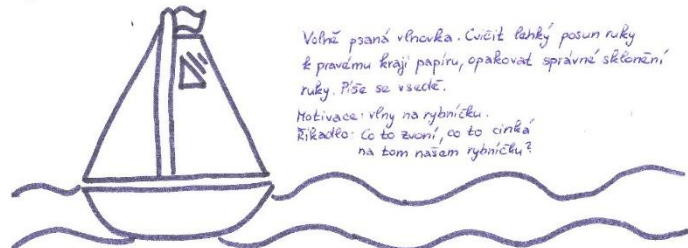 Volně psaná vlnovka. Cvičit lehký posun ruky
k pravému kraji papíru, opakovat správné sklonění
ruky. Píše se vsedě.
Motivace: vlny na rybníčku.
Říkadlo: Co to zvoní, co to cinká
na tom našem rybníčku?